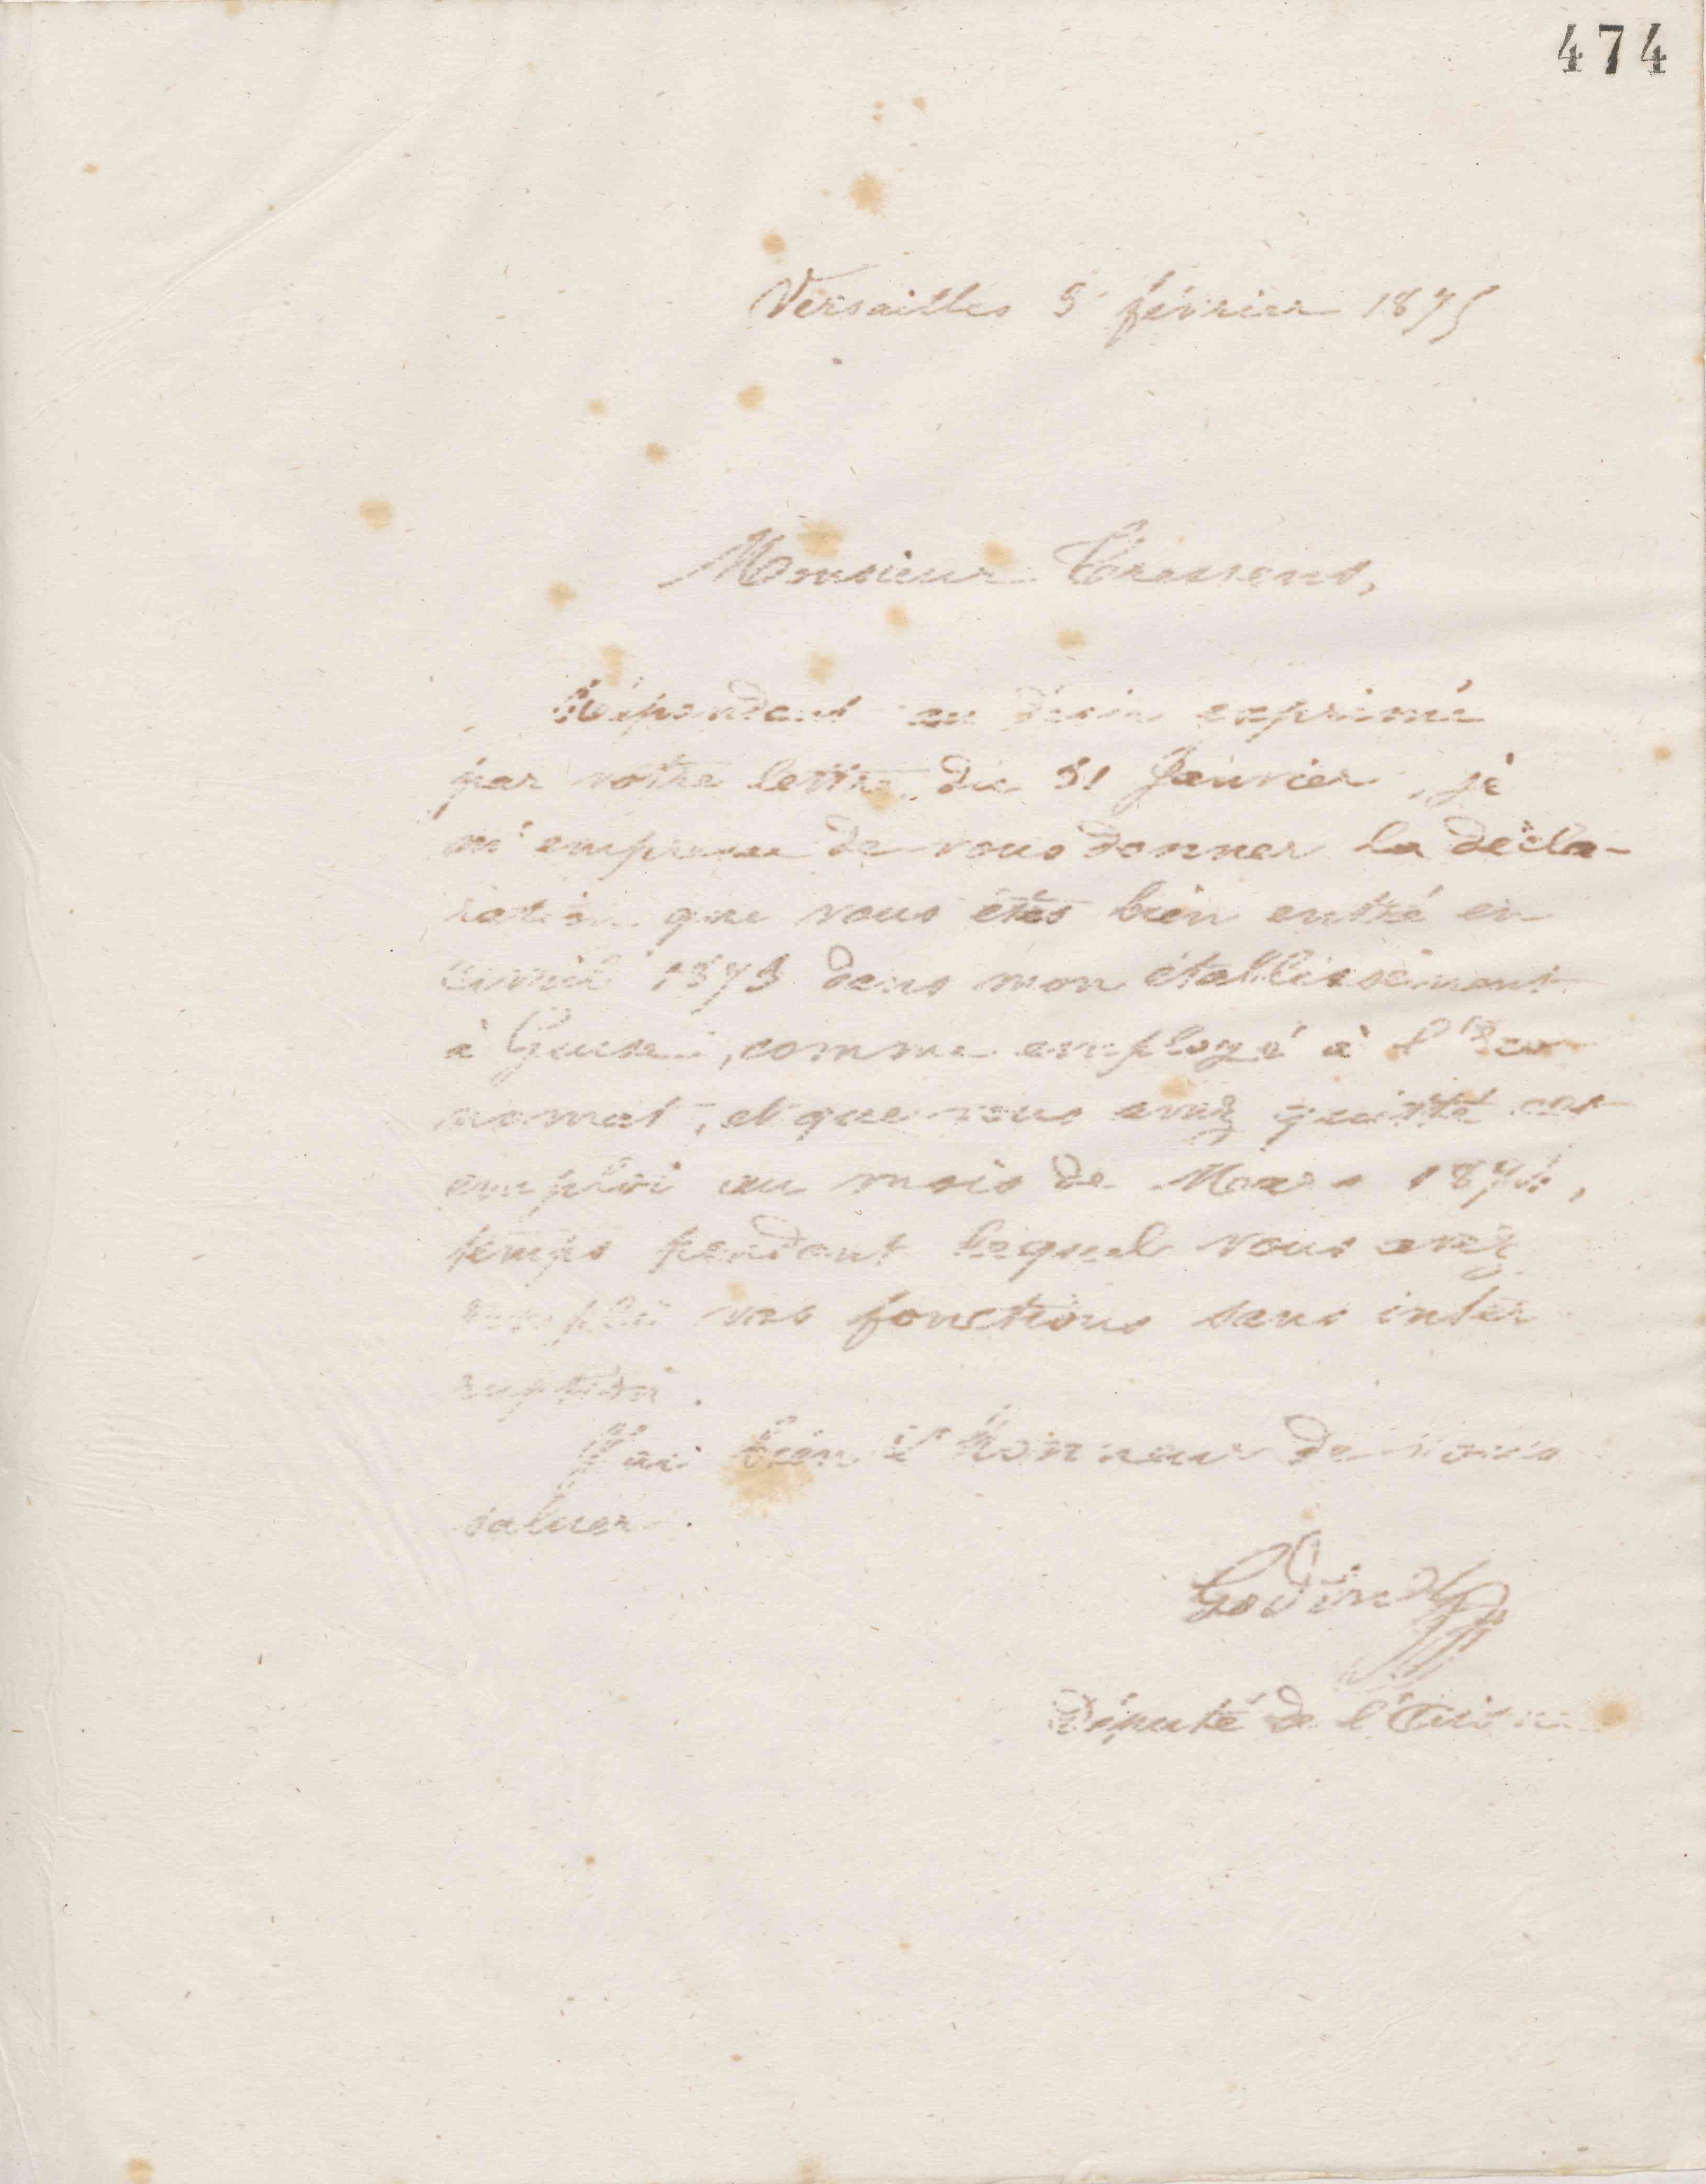 474
Versailles 5 février 1875
Monsieur
Répondant au désir exprimé
par votre lettre du 31 Janvier, je
m'empresse de vous donner la décla-
ration que vous êtes bien entré en
1873 dans mon établissement
à Guise, comme employé à l'Eco
nomat, et que vous avez quitté cet
emploi au mois de Mars 1874,
temps pendant lequel vous avez
rempli vos fonctions sans inter
ruption.
J'ai bien l'honneur de vous
saluer.
Godin
Député de l'Aisne